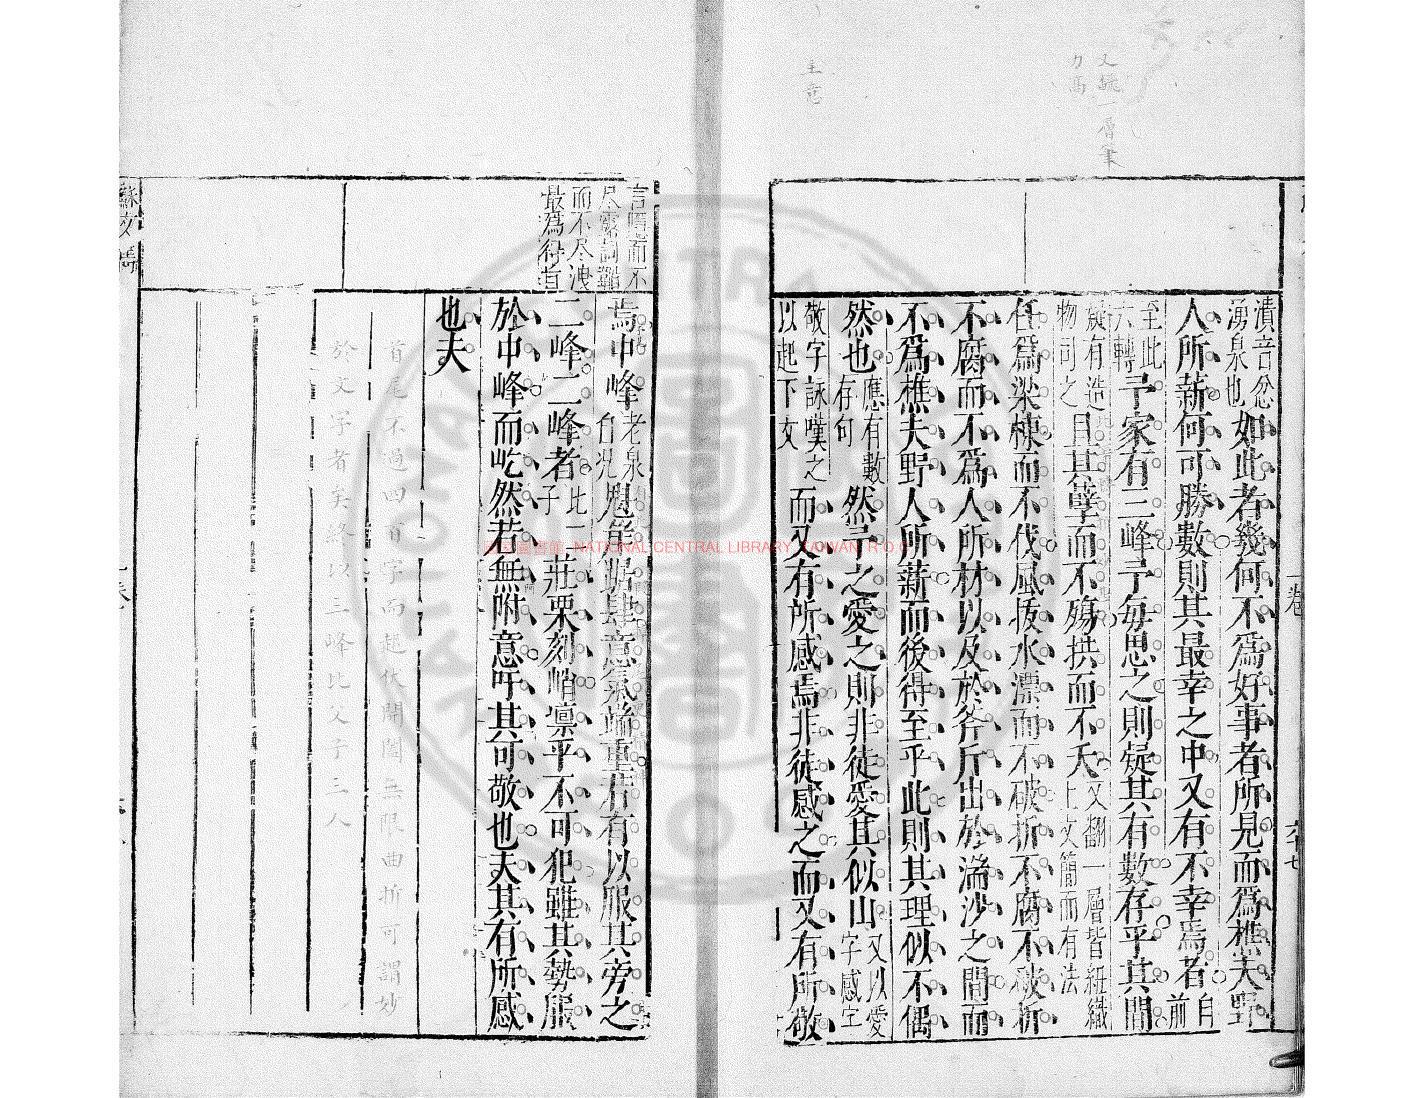 又翻一層筆
力高
主意
濆音忿
湧泉也
如此者幾何不爲好事者所見而爲樵夫野
人所薪何可勝數則其最幸之中又有不幸焉者
自前
至此
六轉
予家有三峰予每思之則疑其有數存乎其間
疑有造
物司之
且其孽而不殤拱而不夭
又翻一層皆紐織
上文簡而有法
任爲梁棟而不伐風拔水漂而不破折不腐不破折
不腐而不爲人所材以及於斧斤出於湍沙之間而
不爲樵夫野人所薪而後得至乎此則其理似不偶
然也
應有數
存句
然予之愛之則非徒愛其似山
又以愛
字感字
敬字詠嘆之
以起下文
而又有所感焉非徒感之而又有所敬
一卷
六十七
言順而不
尽露詞鞱
而不尽洩
最爲得旨
焉中峰
老泉
自况
魁岸踞肆意氣端重若有以服其旁之
二峰二峰者
比二
子
莊栗刻峭凛乎不可犯雖其勢服
於中峰而岌然若無附意吁其可敬也夫其有所感
也夫
首尾不過四百字而起伏開闔無限曲折可謂妙
於文字者矣終以三峰比父子三人
蘇文嶲
國家圖書館 NATIONAL CENTRAL LIBRARY, TAIWAN, R.O.C